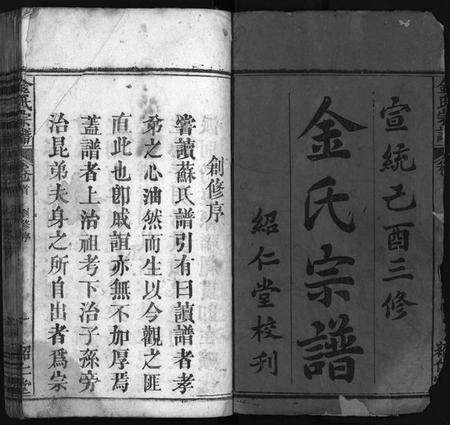 宣統己酉三修
金氏宗譜
紹仁堂校刋
創修序
嘗讀蘇氏譜引有曰讀譜者孝
弟之心油然而生以今觀之匪
直此也卽戚誼亦無不加厚焉
蓋譜者上治祖考下治子孫旁
治昆弟夫身之所自出者爲宗
金氏宗譜
卷首
創修序
一
紹仁堂